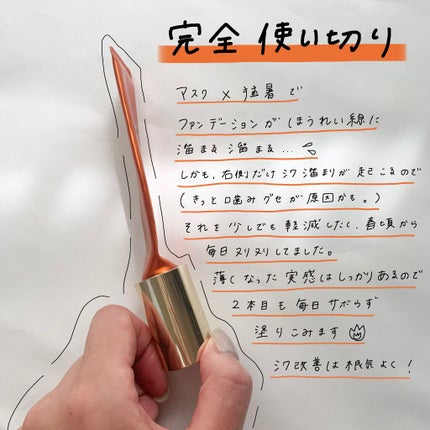 完全使い切り
マスク × 猛暑で
ファンデーションがほうれい線に
溜まる溜まる…
しかも、右側だけシワ溜まりが起こるので
(きっと噛みグセが原因かも。)
それを少しでも軽減したく、春頃から
毎日ヌリヌリしてました。
薄くなった実感はしっかりあるので
2本目も毎日サボらず
塗りこみます
シワ改善は根気よく!